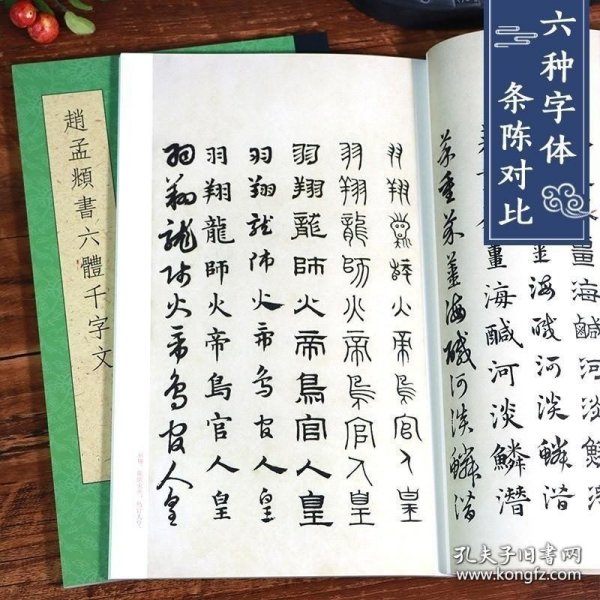 六种字体
条陈对比
趙孟頫書六體千字文
羽翔龍師火帝鳥官人皇
羽翔龍師火帝鳥官人皇
羽翔龍師火帝鳥官人皇
羽翔龍師火帝鳥官人皇
羽翔龍師火帝鳥官人皇
羽翔龍師火帝鳥官人皇
薑海鹹河淡鱗
薑海鹹河淡鱗潛
薑海鹹河淡鱗潛
菜重芥薑海鹹河淡鱗潛
孔夫子旧书网
www.kongfz.com